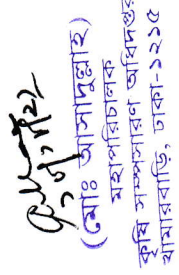 (মোঃ আসাদুল্লাহ)
মহাপরিচালক
কৃষি সম্প্রসারণ অধিদপ্তর
খামারবাড়ি, ঢাকা-১২১৫